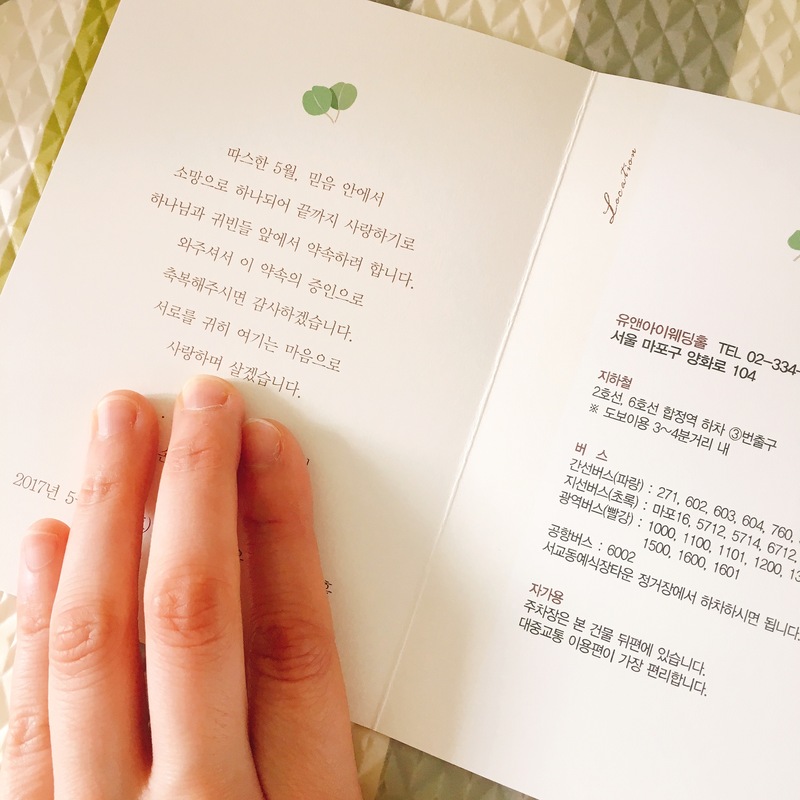 따스한 5월, 믿음 안에서
소망으로 하나되어 끝까지 사랑하기로
하나님과 귀빈들 앞에서 약속하려 합니다.
와주셔서 이 약속의 증인으로
축복해주시면 감사하겠습니다.
서로를 귀히 여기는 마음으로
사랑하며 살겠습니다.
2017년 5
Location
유앤아이웨딩홀 TEL 02-334-
서울 마포구 양화로 104
지하철
2호선, 6호선 합정역 하차 ③번출구
※ 도보이용 3~4분거리 내
버 스
간선버스(파랑) : 271, 602, 603, 604, 760,
지선버스(초록) : 마포16, 5712, 5714, 6712,
광역버스(빨강) : 1000, 1100, 1101, 1200,
1500, 1600, 1601
공항버스 : 6002
서교동예식장타운 정거장에서 하차하시면 됩니다.
자가용
주차장은 본 건물 뒤편에 있습니다.
대중교통 이용편이 가장 편리합니다.